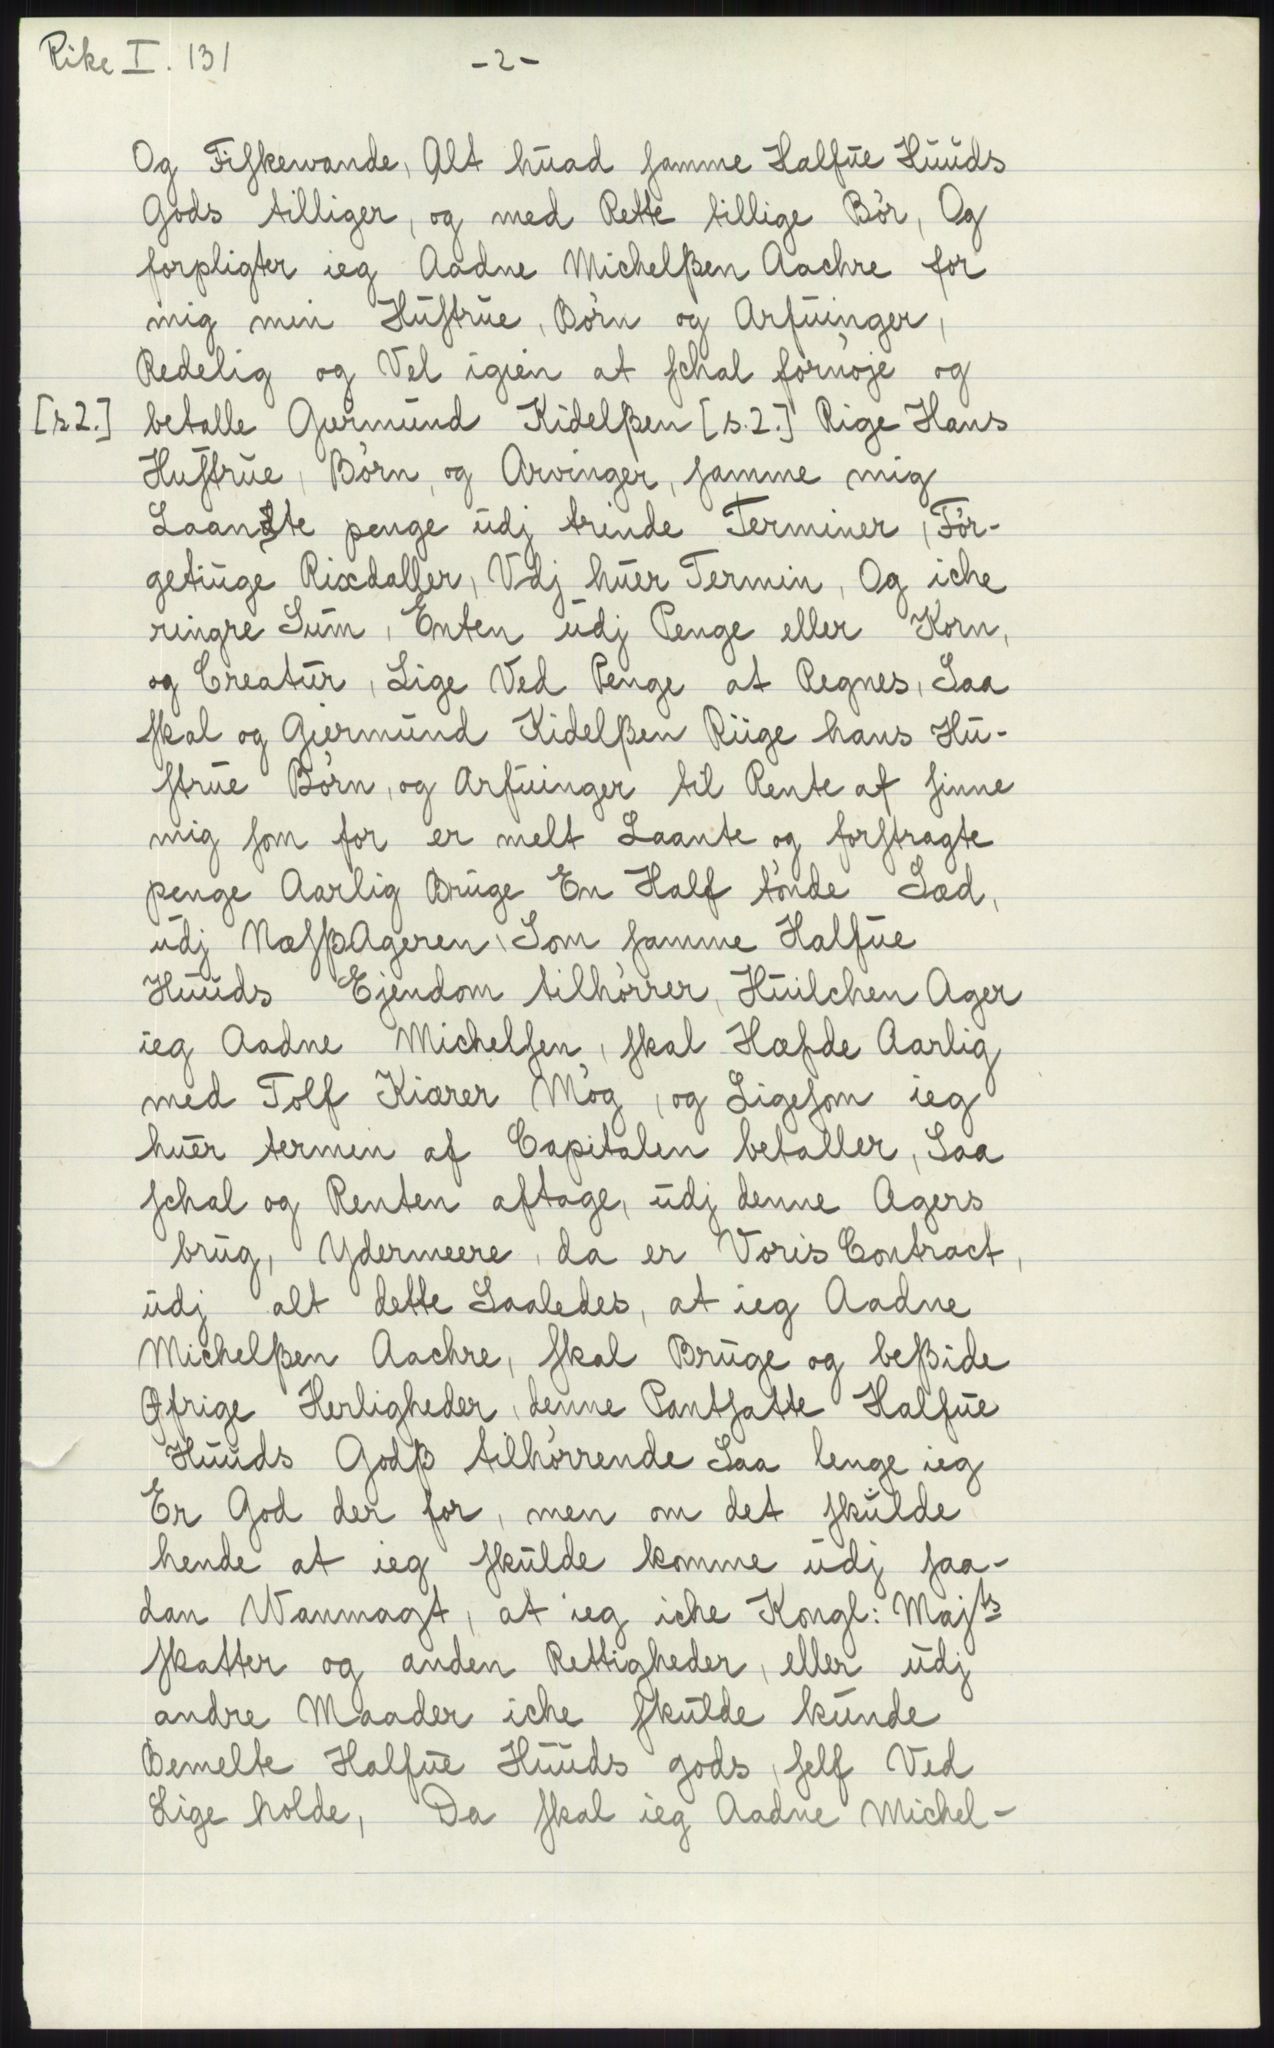 Rike I. 131
-2-
Og Fiskewande, Alt huad samme Halfue Huuds
Gods tilliger, og med Rette tillige Bör, Og
forpligter ieg Aadne Michelßen Aachre for
mig min Hustrue, Börn og Arfuinger,
Redelig og Vel igien at schal fornöje og
[s.2.] betalle Gurmund Kidelßen [s.2.] Rige Hans
Hustrue, Börn, og Arvinger, samme mig
Laandte penge udj trinde Terminer, För-
getiuge Rixdaller, Vdj huer Termin, Og iche
ringre Sum, Enten udj Penge eller Korn,
og Creatur, Lige Ved Penge at Regnes, Saa
skal og Giermund Kidelßen Riige hans Hu-
strue Börn, og Arfuinger til Rente af sinne
mig som for er melt Laante og forstragte
penge Aarlig Bruge En Half tönde Sæd,
udj NæsßAgeren, Som samme Halfue
Huuds Ejendom tilhörrer, Huilchen Ager
ieg Aadne Michelsen, skal Hæfde Aarlig
med Tolf Kiærer Mög, og Ligesom ieg
huer termin af Capitalen betaller, Saa
schal og Renten aftage, udj denne Agers
brug, Ydermeere, da er Voris Contract,
udj alt dette Saaledes, at ieg Aadne
Michelßen Aachre, skal Bruge og beßide
Øfrige Herligheder, denne Pantsatte Halfue
Huuds Godß tilhörrende Saa lenge ieg
Er God der for, men om det skulde
hende at ieg skulde komme udj saa-
dan Wanmagt, at ieg iche Kongl: Majts
skatter og anden Rettigheder, eller udj
andre Maader iche skulde kunde
Bemelte Halfue Huuds gods, self Ved
Lige holde, Da skal ieg Aadne Michel-